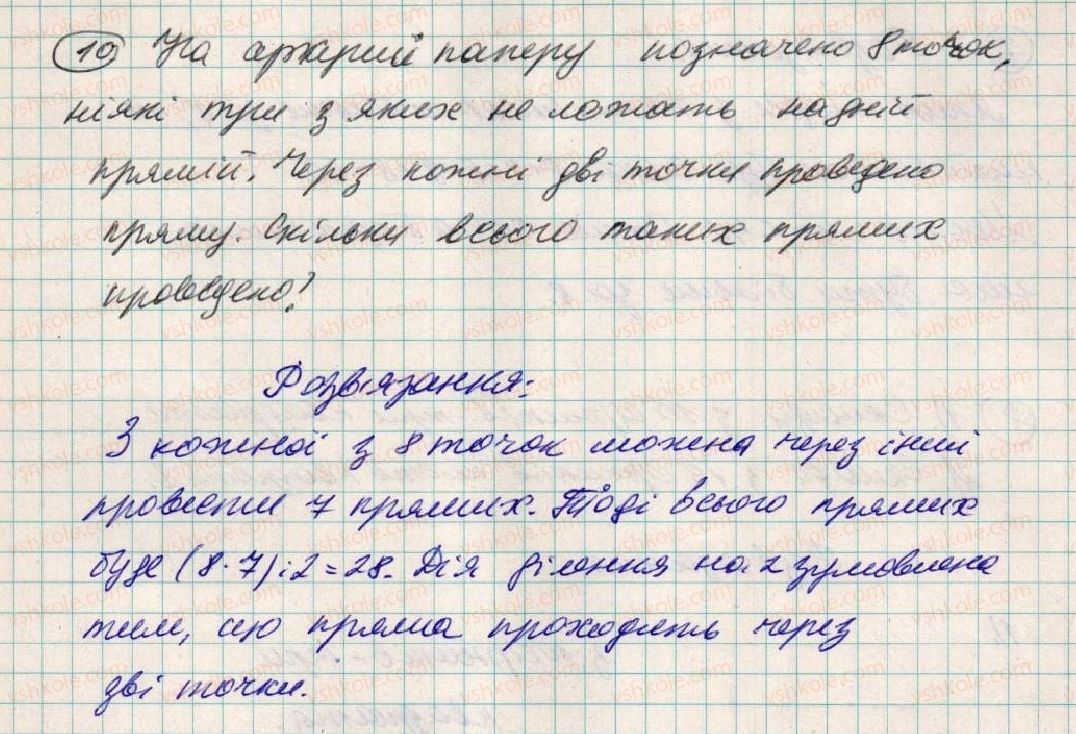 10 На аркуші паперу позначено 8 точок,
ніякі три з яких не лежать на одній
прямій. Через кожні дві точки проведено
пряму. Скільки всього таких прямих
проведено?
Розв'язання:
З кожної з 8 точок можна через інші
провести 7 прямих. Тоді всього прямих
буде (8·7):2=28. Дія ділення на 2 зумовлена
тим, що пряма проходить через
дві точки.